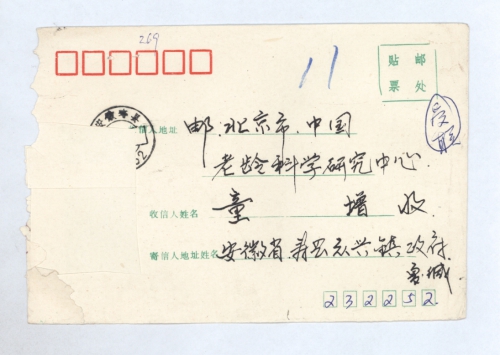 269
11
贴邮
票处
安徽寿县
受
收信人地址 邮:北京市.中国
老龄科学研究中心.
收信人姓名 童 增 收
寄信人地址姓名 安徽省寿县众兴镇政府.
232252